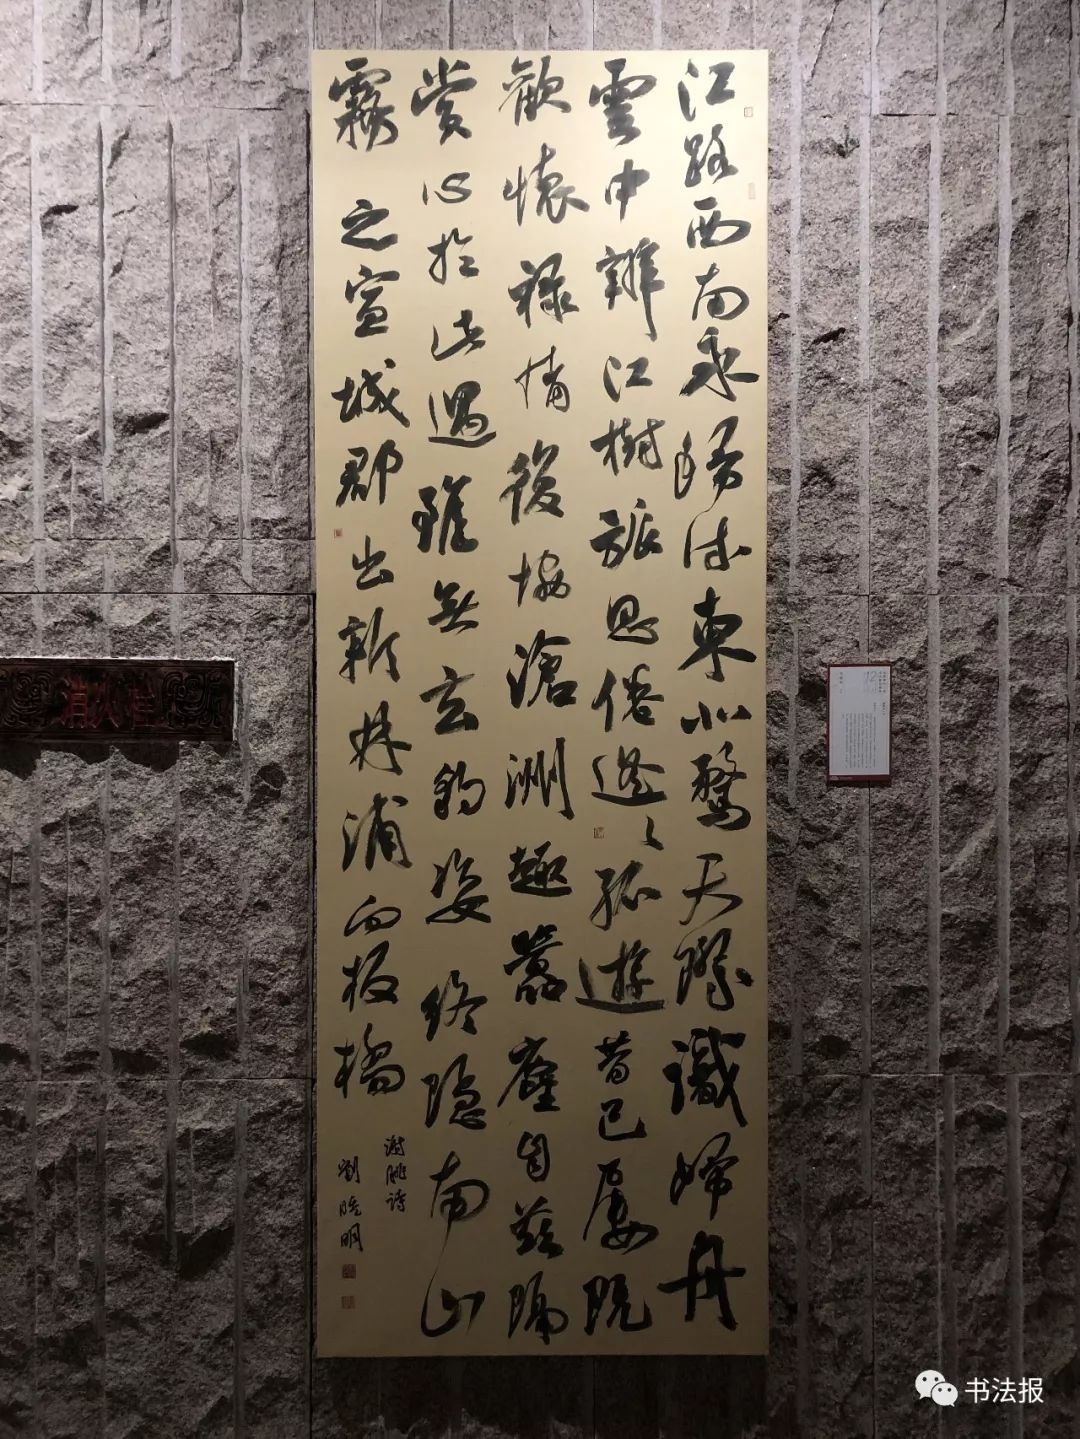 江路西南永歸流東北騖天際識歸舟
雲中辨江樹旅思倦遥〻孤遊昔已屢既
歡懷禄情復協滄洲趣囂塵自兹隔
賞心於此遇雖無玄豹姿終隱南山
霧之宣城郡出新林浦向板橋
謝朓詩
劉曉明
消火栓
书法报